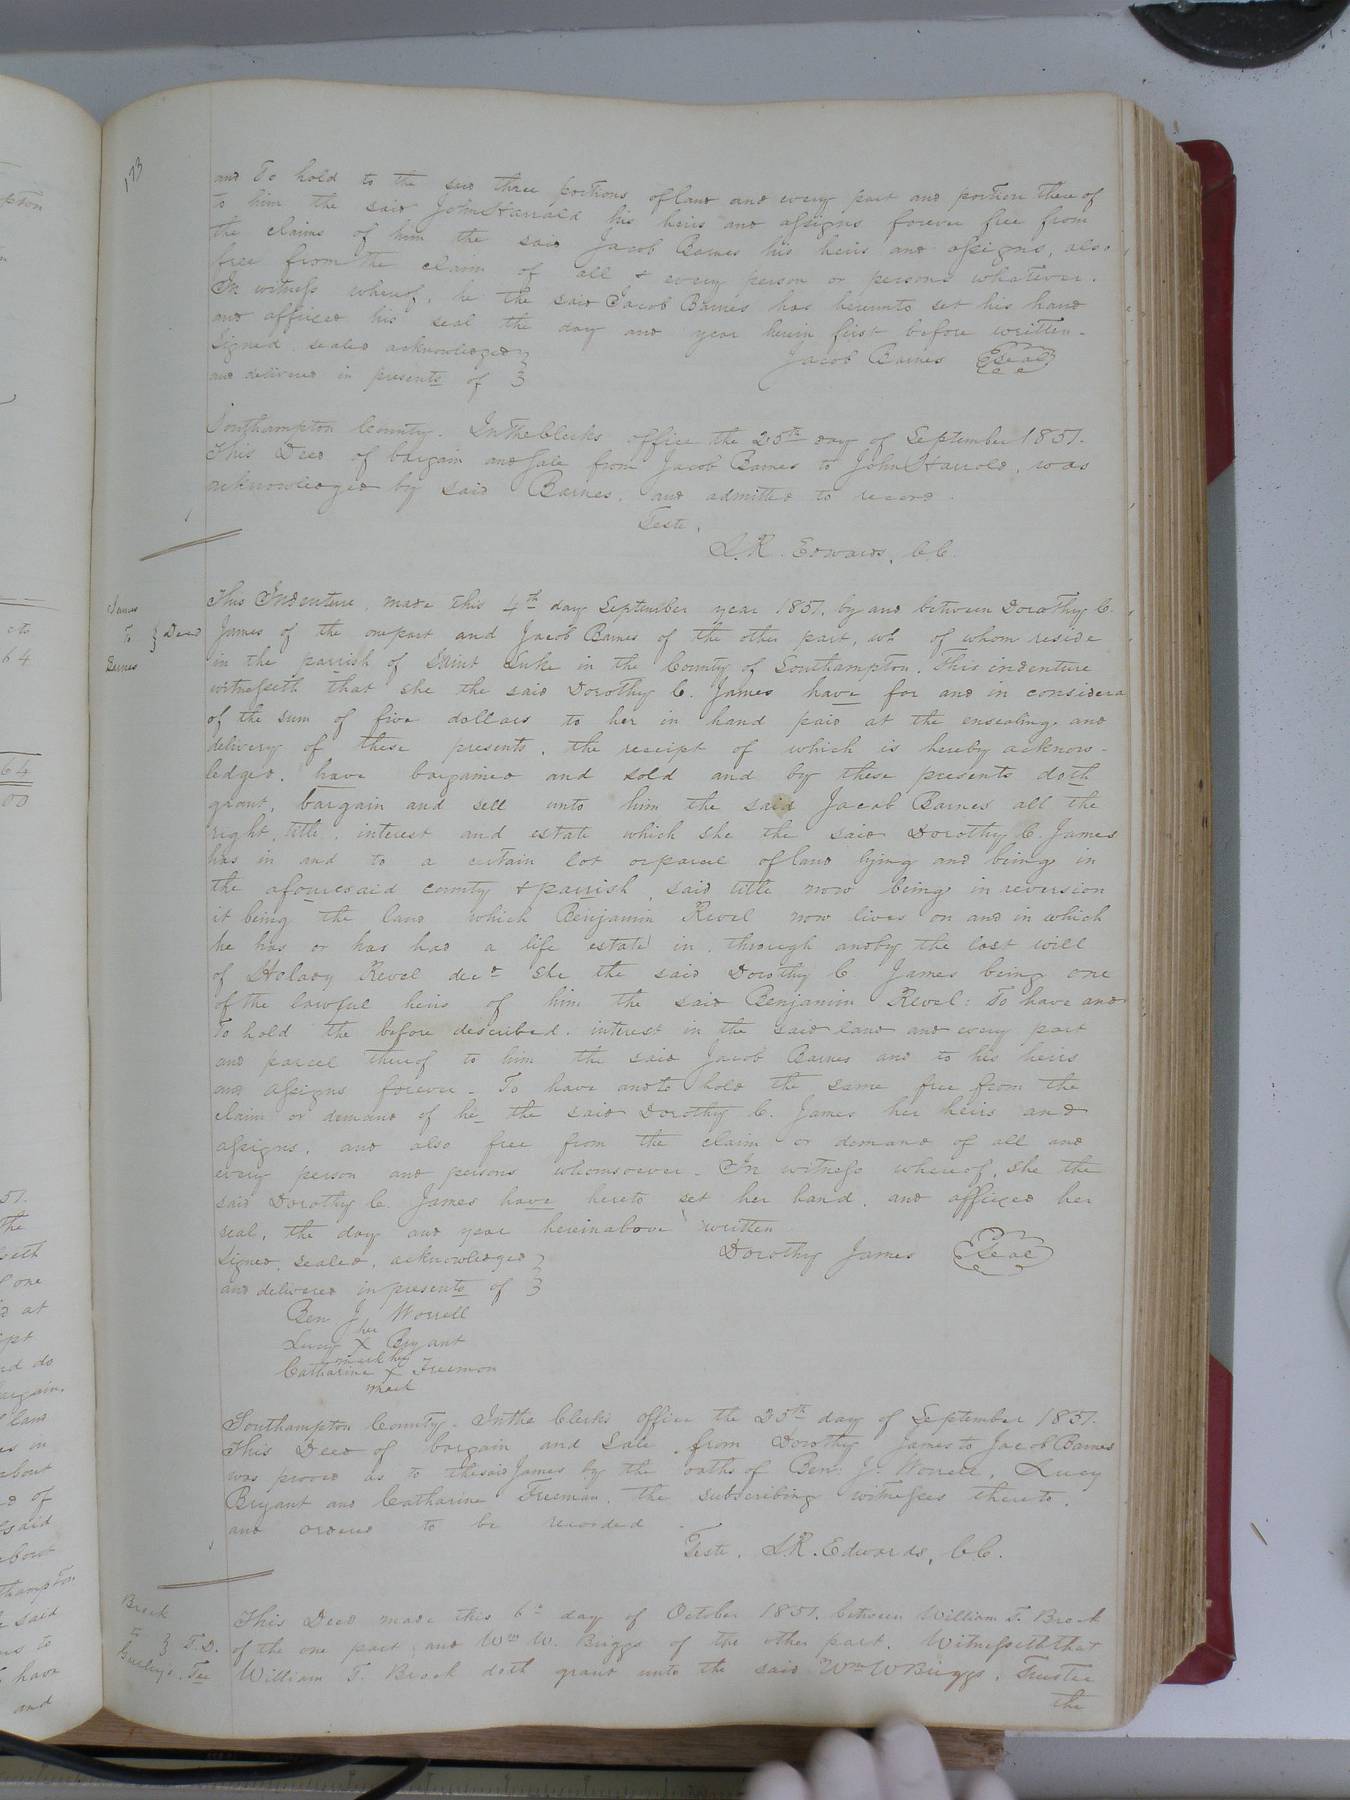 173
and To hold to the said three portions of land and every part and portion there of
to him the said John Harrold his heirs and assigns forever free from
the claims of him the said Jacob Barnes his heirs and assigns, also
free from the claim of all & every person or persons whatever.
In witness whereof, he the said Jacob Barnes has hereunto set his hand
and affixed his seal the day and year herein first before written-
Signed sealed acknowledged } Jacob Barnes Seal
and delivered in presents of }
Southampton County. In the Clerks office the 25th day of September 1851.
This Deed of bargain and sale from Jacob Barnes to John Harrold, was
acknowledged by said Barnes, and admitted to record.
Teste,
L.R. Edwards, C.C.
James
to } Deed
Barnes
This Indenture, made this 4th day September year 1851, by and between Dorothy C.
James of the one part and Jacob Barnes of the other part, of whom reside
in the parrish of Saint Luke in the County of Southampton. This indenture
witnesseth that she the said Dorothy C. James have for and in considera
of the sum of five dollars to her in hand paid at the ensealing and
delivery of these presents, the receipt of which is hereby acknow-
ledged, have bargained and sold and by these presents doth
grant, bargain and sell unto him the said Jacob Barnes all the
right, title, interest and estate which she the said Dorothy C. James
has in and to a certain lot or parcel of land lying and being in
the afouresaid county & parrish, said title now being in reversion
it being the land which Benjamin Revel now lives on and in which
he has or has had a life estate in, through and by the last will
of Holady Revel decd She the said Dorothy C James being one
of the lawful heirs of him the said Benjamin Revel: To have and
To hold the before described interest in the said land and every part
and parcel thereof to him the said Jacob Barnes and to his heirs
and assigns forever - To have and to hold the same free from the
claim or demand of he the said Dorothy C. James her heirs and
assigns, and also free from the claim or demand of all and
every person and persons whomsoever - In witness whereof, she the
said Dorothy C. James have hereto set her hand, and affixed her
seal, the day and year herein above written
Signed, sealed, acknowledged } Dorothy James Seal
and delivered in presents of }
Ben J. Worrell
her
Lucy X Bryant
mark her
Catharine X Freeman
mark
Southampton County. In the Clerks office the 25th day of September 1851.
This Deed of bargain and Sale, from Dorothy James to Jacob Barnes
was proved as to the said James by the oaths of Ben: J. Worrell, Lucy
Bryant and Catharine Freeman, the subscribing witnesses thereto,
and ordered to be recorded.
Teste, L.R. Edwards, C.C.
Brock
to } T.D.
Tee
This Deed made this 6th day of October 1851, between William T. Brock
of the one part, and Wm W. Briggs of the other part. Witnesseth that
William T. Brock doth grant unto the said Wm W Briggs, Trustee
the